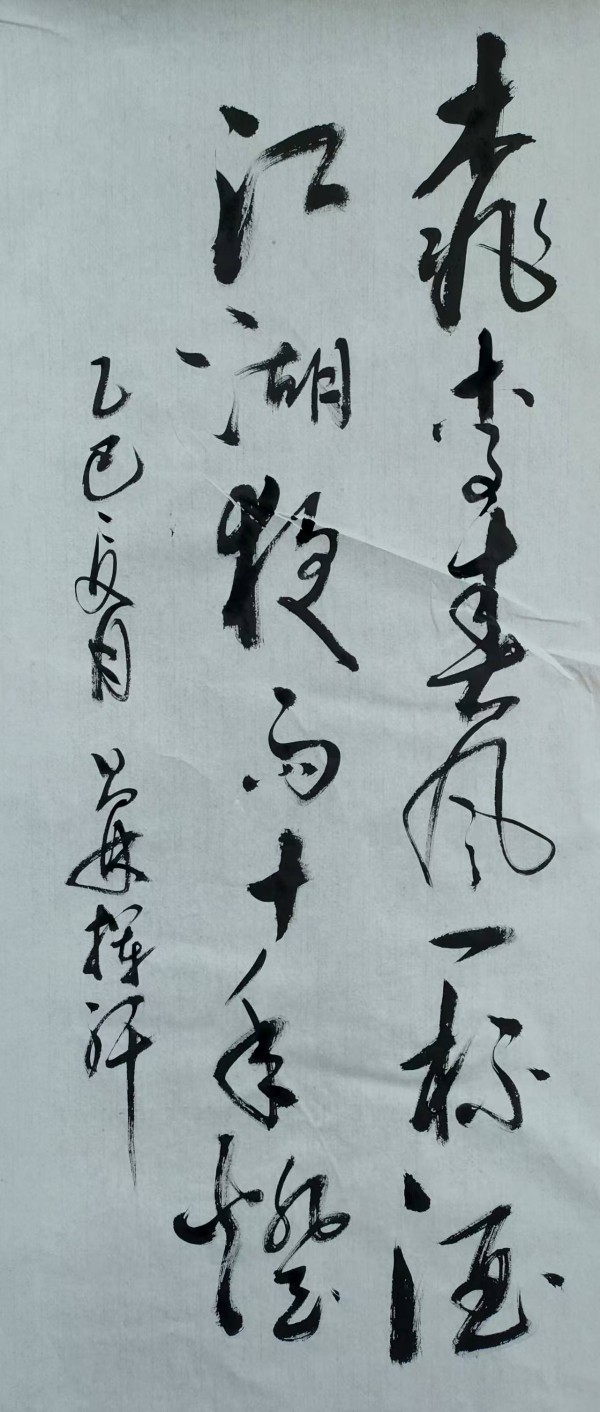 桃李春风一杯酒
江湖夜雨十年灯
乙巳夏月 挥汗